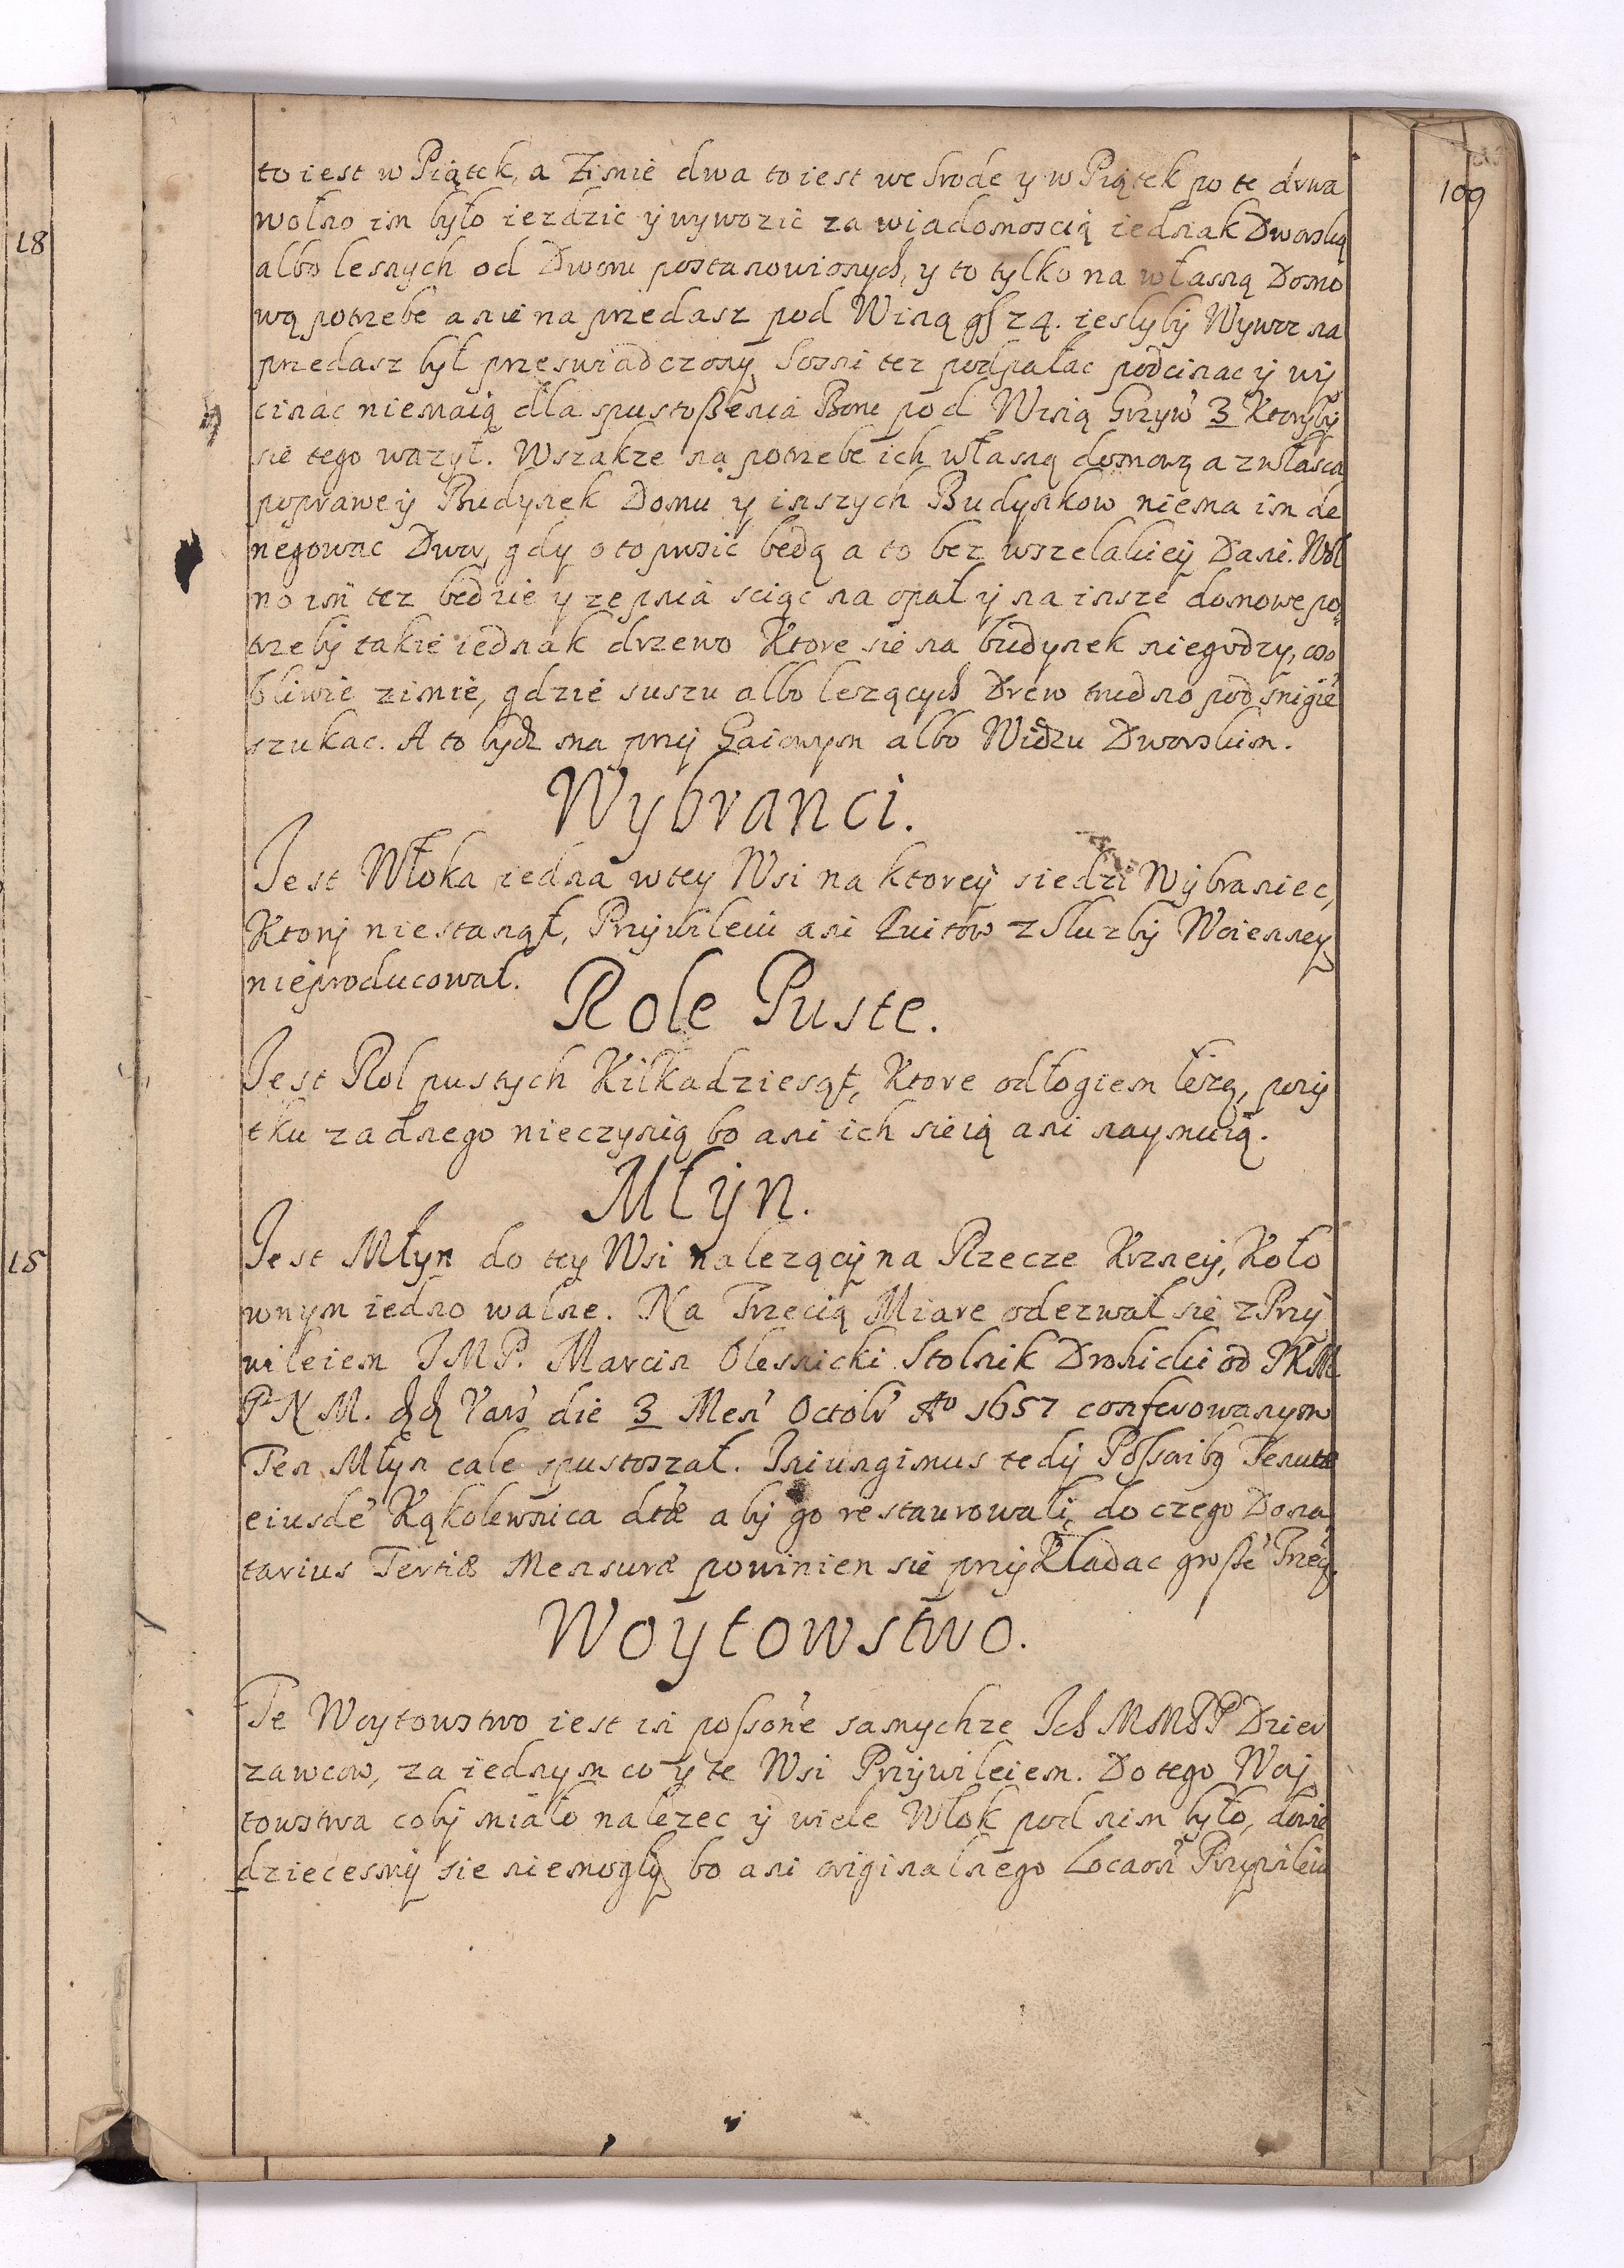 109
18
to iest w Piątek, a Zimie dwa to iest we srode y w Piątek po te drwa
wolno im było iezdzic ÿ wywozic za wiadomoscią iednak Dworską
albo lesnych od Dworu postanowionych, y to tylko na własną Domo
wą potrzebe a nie na przedasz pod Winą gſ z 4. ieslyby Wywoz na
przedasz był przeswiadczony, Sosni tez podpałac podcinac ÿ wÿ
cinac niemaią dla spustoßenia Boru pod Winą Grzyw̃ 3 Ktoryby
sie tego wazył. Wszakze na potrzebe ich własną domową a zwłasca
poprawe ÿ Budynek Domu y inszych Budynkow niema im de
negowac Dwor, gdy o to prosic będą a to bez wszelakieÿ Dani. Wol
no im̃ tez będzie y ze pnia sciąc na opał ÿ na insze domowe po
trzebÿ takie iednak drzewo Ktore sie na budynek niegodzy, oso
bliwie zimie, gdzie suszu albo lezących Drew trudno pod snigiẽ
szukac. A to bydz ma przÿ Gaiowym albo Widzu Dworskim.
Wybranci.
Jest Włoka iedna w tey Wsi na ktoreÿ siedzi Wÿbraniec,
Ktorÿ niestanął, Przÿwileiu ani Quitow z Sluzbÿ Woienney
nieproducował.
Role Puste.
Jest Rol pustych Kilkadziesąt, Ktore odłogiem lezą, pozÿ
tku zadnego nieczynią bo ani ich sieią ani naymuią.
Młÿn.
15
Jest Młyn do tey Wsi nalezącÿ na Rzecze Krzneÿ, Koło
wnym iedno walne. Na Trzecią Miare odezwał sie z Przÿ
wileiem JMP. Marcin Olesnicki Stolnik Drohicki od JKM
PNM. Vars̃ die 3 Meñ Octobr̃ Aᵒ 1657 conferowanym
Ten Młyn cale spustoszał. Iniungimus tedÿ Poſſoribꝫ Tenutæ
eiusdẽ Kąkolewnica dtæ abÿ go restaurowali, do czego Dona
tarius Tertiæ Mensuræ powinien sie przÿkładac groſſẽ Trzeᶜⁱ.
Woytowstwo.
Te Woytowstwo iest in poſſoñe samychze Ich MMPP Dzier
zawcow, za iednym co y te Wsi Przÿwileiem. Do tego Woÿ
towstwa cobÿ miało nalezec ÿ wiele Włok pod nim było, dowie
dziecesmÿ sie niemogly, bo ani originalnego Locaoñ Przywileiu